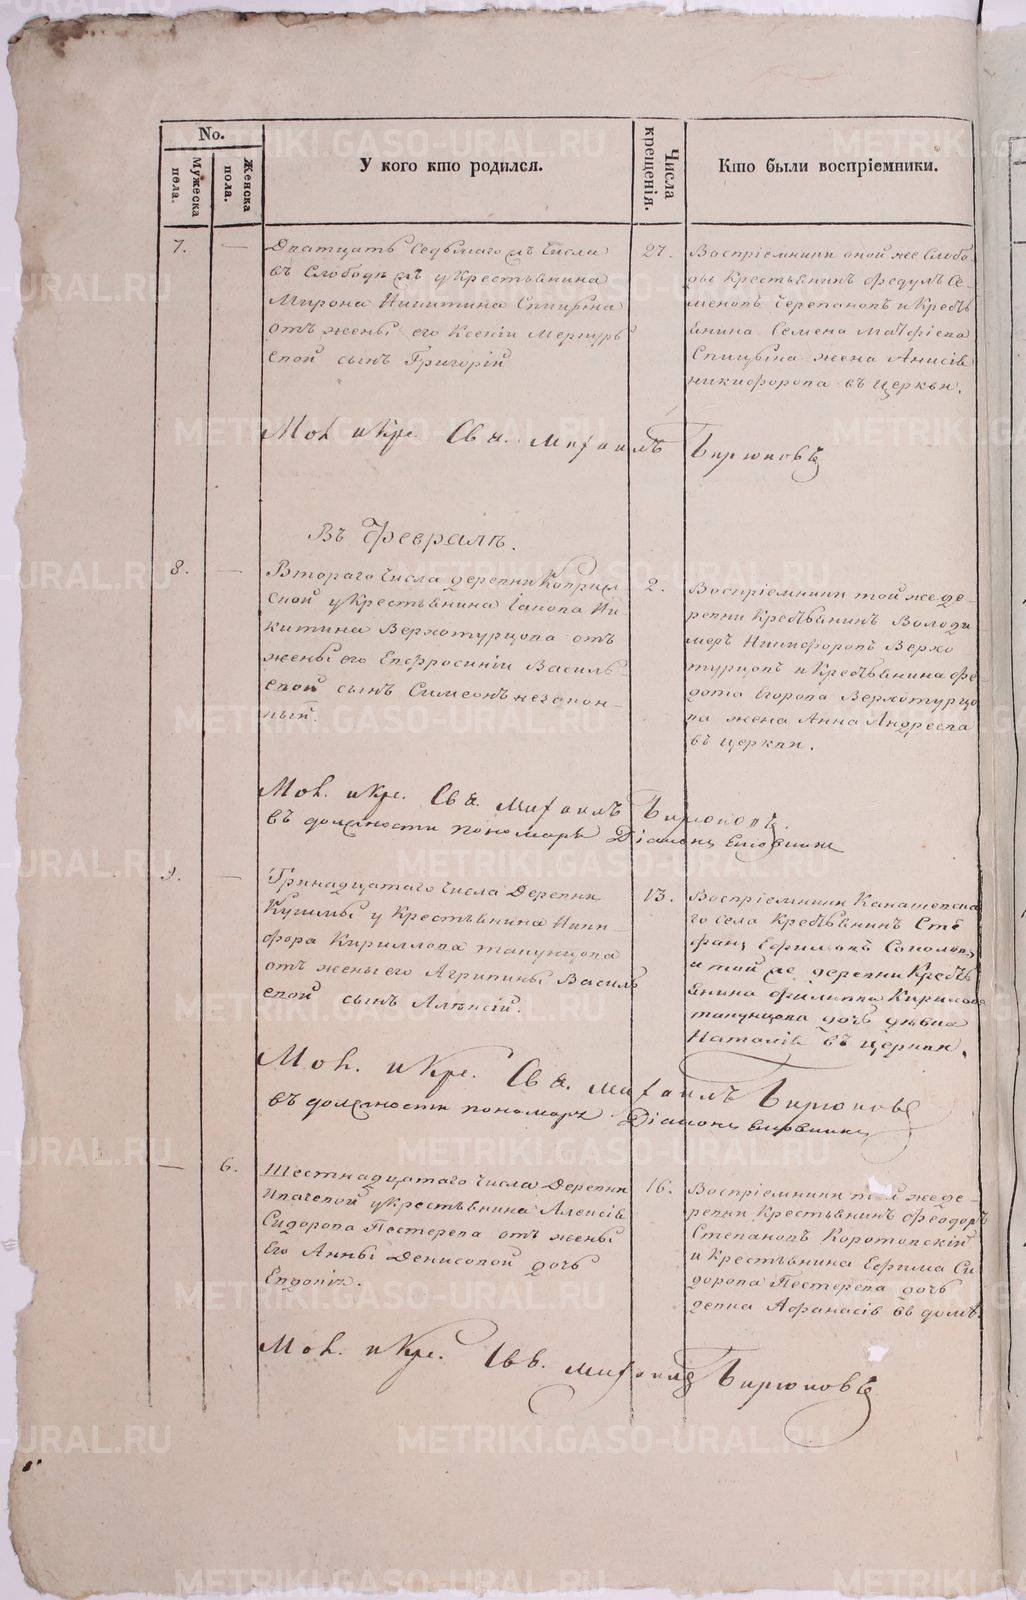 No.
Мужеска пола.
Женска пола.
У кого кто родился.
Числа крещенія.
Кто были воспріемники.
7. —
Дватцать седьмаго числа
въ Слободѣ у Крестьянина
Мирона Никитина Спицына
отъ жены его Ксеніи Меркурь
евой сынъ Григорій
27.
Воспріемники оной же Слобо
ды Крестьянинъ Федулъ Се-
меновъ Черепановъ и Кресть
янина Семена Матфіева
Спицына жена Анисія
никифорова въ церкви.
Мол. и Кре. Свя. Михаилъ Бирюковъ
Въ Февралѣ.
8. —
Втораго числа деревни
ской у Крестьянина Іакова Ни
китина Верхотурцова отъ
жены его Евфросиніи Василь
евой сынъ Симеонъ незакон-
ный.
2.
Воспріемники той же де-
ревни Крестьянинъ Володи
меръ Никифоровъ Верхо
турцовъ и Крестьянина Фе-
дота Егорова Верхотурцо
ва жена Анна Андреева
въ церкви.
Мол. и Кре. Свя. Михаилъ Бирюковъ.
въ должности пономаря Діаконъ
9. —
Тринадцатаго числа Деревни
у Крестьянина Ники-
фора Кириллова
отъ жены его Агрипины Василь
евой сынъ Алексій.
13.
Воспріемники Канашевска
го села Крестьянинъ Сте
фанъ Ефимовъ Соколовъ
и той же деревни Кресть
янина Филиппа Кирилова
дочь дѣвка
Наталія въ церкви.
Мол. и Кре. Свя. Михаилъ Бирюковъ
въ должности пономаря Діаконъ
— 6.
Шестнадцатаго числа Деревни
у Крестьянина Алексія
Сидорова Пестерева отъ жены
Его Анны Денисовой дочь
Евдокія.
16.
Воспріемники той же де-
ревни Крестьянинъ Феодоръ
Степановъ
и Крестьянина Ефима Си
дорова Пестерева дочь
девка Афанасія въ домѣ.
Мол. и Кре. Свя. Михаилъ Бирюковъ
METRIKI.GASO-URAL.RU